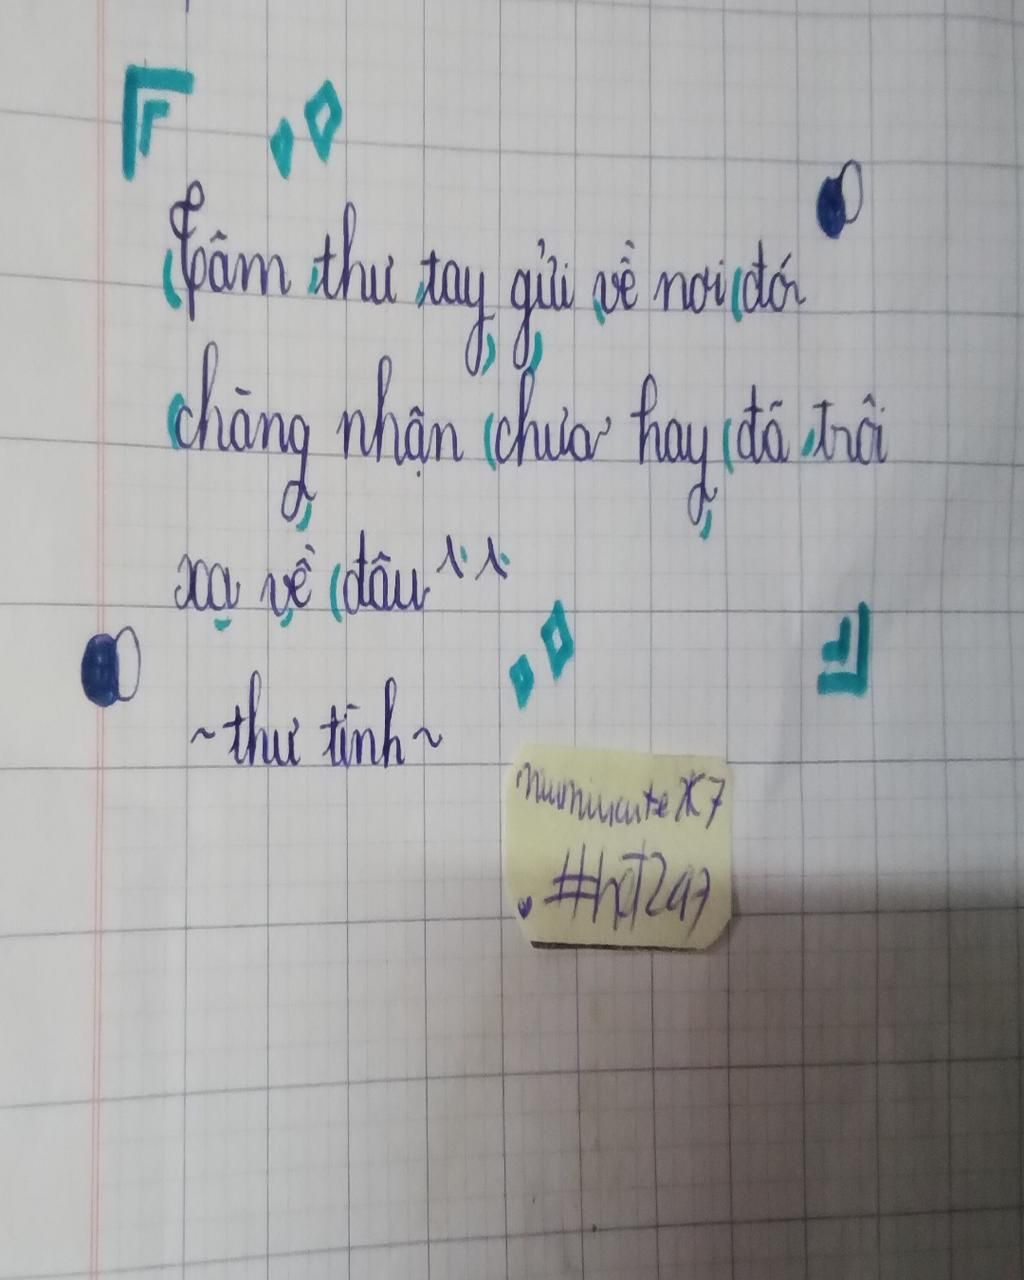 Tâm thư tay gửi về nơi đó
chàng nhận chưa hay đã trôi
xa về đâu
~thư tình~
#hot2a7